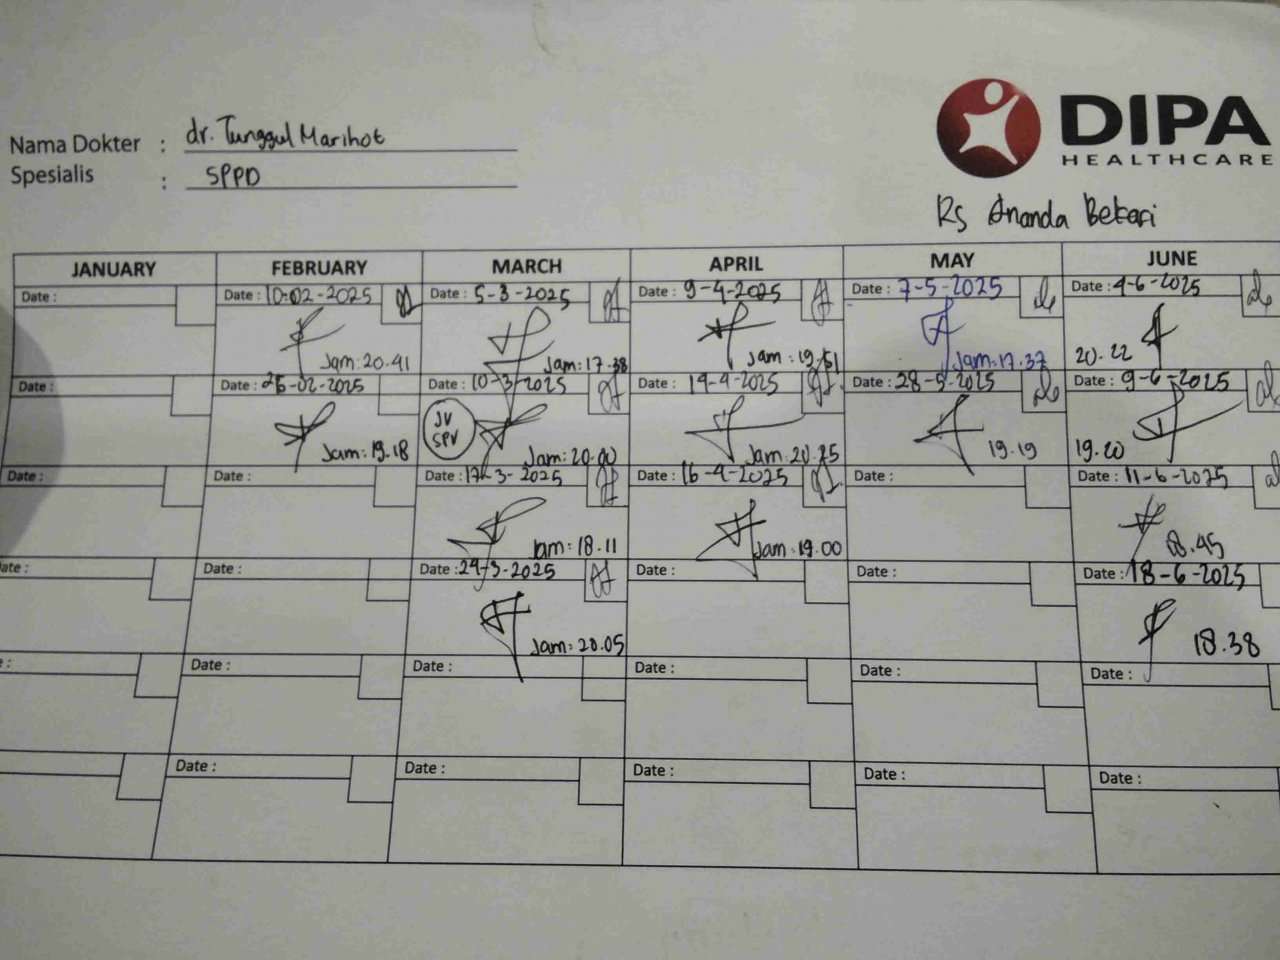 DIPA
HEALTHCARE
Nama Dokter : dr. Tunggul Marihot
Spesialis : SPPD
Rs Ananda Bekasi
JANUARY FEBRUARY MARCH APRIL MAY JUNE
Date : Date : 10-02-2025 Date : 5-3-2025 Date : 9-4-2025 Date : 7-5-2025 Date : 4-6-2025
Jam: 20.41 Jam: 17.38 Jam: 19.51 Jam: 17.37 20.22
Date : Date : 25-02-2025 Date : 10-3-2025 Date : 14-4-2025 Date : 28-5-2025 Date : 9-6-2025
JV
SPV
Jam: 19.18 Jam: 20.00 Jam: 20.25 19.19 19.20
Date : Date : Date : 17-3-2025 Date : 16-4-2025 Date : Date : 11-6-2025
Jam: 18.11 Jam: 19.00 18.45
Date : Date : Date : 24-3-2025 Date : Date : Date : 18-6-2025
Jam: 20.05 18.38
Date : Date : Date : Date : Date :
Date : Date : Date : Date : Date :